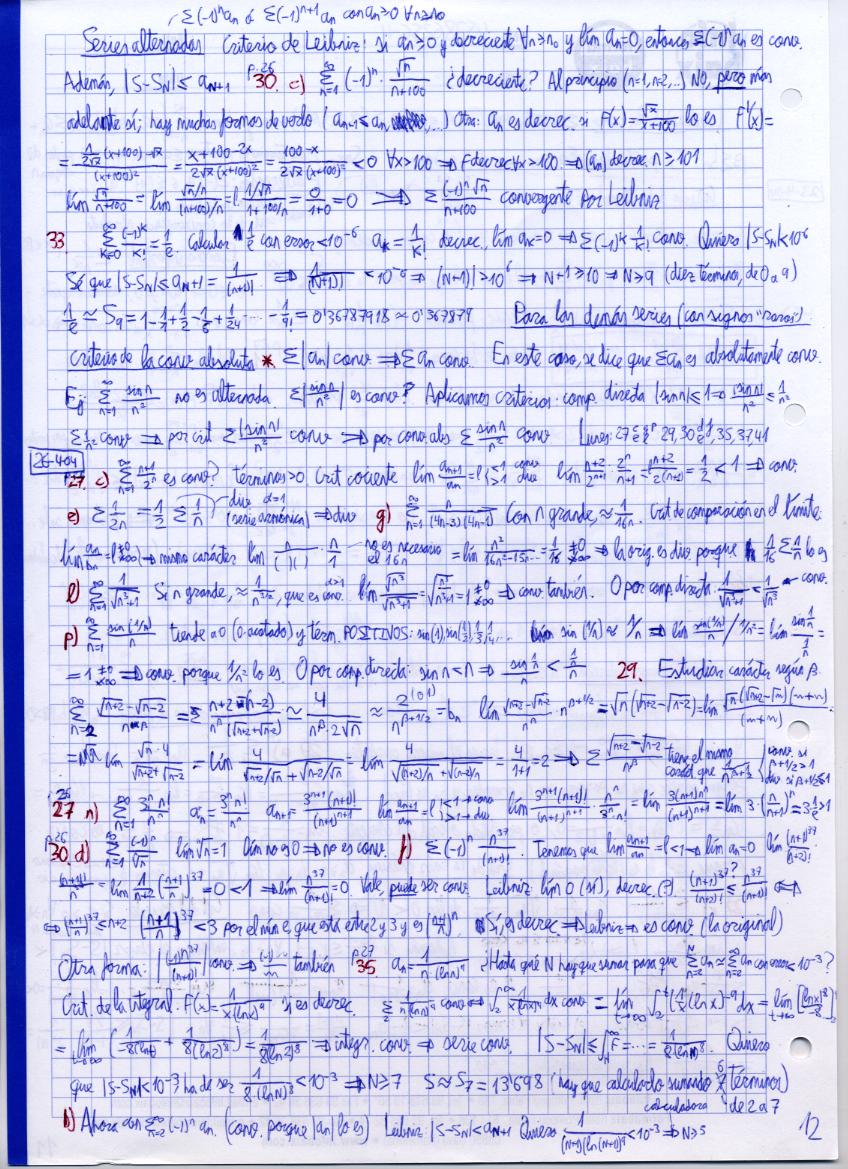 Σ(-1)ⁿaₙ ó Σ(-1)ⁿ⁺¹aₙ con aₙ≥0 ∀n≥n₀
Series alternadas Criterio de Leibniz: si aₙ≥0 y decreciente ∀n≥n₀ y lím aₙ=0, entonces Σ(-1)ⁿaₙ es conv.
Además, |S-S_N|≤a_{N+1} p.26 30. c) Σ_{n=1}^∞ (-1)ⁿ·√n/(n+100) ¿decreciente? Al principio (n=1, n=2,...) NO, pero más
adelante sí; hay muchas formas de verlo (aₙ₊₁≤aₙ ...) Otra: aₙ es decrec. si F(x)=√x/(x+100) lo es F'(x)=
= (1/(2√x)(x+100)-√x)/(x+100)² = (x+100-2x)/(2√x(x+100)²) = (100-x)/(2√x(x+100)²) <0 ∀x>100 ⇒ F decrec ∀x>100 ⇒ (aₙ) decrec. n≥101
lím √n/(n+100) = lím (√n/n)/((n+100)/n) = l. (1/√n)/(1+100/n) = 0/(1+0) = 0 ⇒ Σ (-1)ⁿ√n/(n+100) convergente por Leibniz
33 Σ_{k=0}^∞ (-1)^k/k! = 1/e Calcular 1/e con error<10⁻⁶ a_k=1/k! decrec., lím a_k=0 ⇒ Σ(-1)^k 1/k! conv. Quiero |S-S_N|<10⁻⁶
Sé que |S-S_N|≤a_{N+1}=1/(n+1)! ⇒ 1/(N+1)! <10⁻⁶ ⇒ (N+1)!>10⁶ ⇒ N+1≥10 ⇒ N≥9 (diez términos, de 0 a 9)
1/e ≃ S₉ = 1-1+1/2-1/6+1/24 ... -1/9! = 0'36787918 ≈ 0'367879 Para las demás series (con signos "raros")
Criterio de la conv absoluta * Σ|aₙ| conv ⇒ Σaₙ conv. En este caso, se dice que Σaₙ es absolutamente conv.
Ej: Σ_{n=1}^∞ sin n/n² no es alternada. Σ|sin n/n²| es conv? Aplicamos criterios: comp. directa |sin n|≤1 ⇒ |sin n|/n² ≤ 1/n²
Σ1/n² conv ⇒ por crit Σ|sin n|/n² conv ⇒ por conv. abs Σ sin n/n² conv Lunes: 27 c e g l p, 29, 30 d f, 35, 37, 41
26-4-04
27. c) Σ_{n=1}^∞ (n+1)/2ⁿ es conv? términos>0 Crit cociente lím aₙ₊₁/aₙ = l <1 conv >1 div lím (n+2)/2ⁿ⁺¹ · 2ⁿ/(n+1) = l (n+2)/(2(n+1)) = 1/2 < 1 ⇒ conv.
e) Σ 1/2n = 1/2 Σ 1/n div α=1 (serie armónica) ⇒ div g) Σ_{n=1}^∞ n/((4n-3)(4n-1)) Con n grande, ≈ 1/16n. Crit. de comparación en el límite:
lím aₙ/bₙ = l ≠0 ≠∞ ⇒ mismo carácter lím n/( )( ) · n/1 no es necesario el 16n = lím n²/(16n²-15n...) = 1/16 ≠0 ≠∞ ⇒ la orig. es div porque 1/16 Σ 1/n lo es
l) Σ_{n=1}^∞ 1/√(n³+1) Si n grande, ≈ 1/n^{3/2}, que es conv. α>1 lím √n³/√(n³+1) = √(n³/(n³+1)) = 1 ≠0 ≠∞ ⇒ conv. también. O por comp. directa: 1/√(n³+1) < 1/√n³ ← conv.
p) Σ_{n=1}^∞ sin(1/n)/n tiende a 0 (0·acotado) y térm. POSITIVOS: sin(1), sin(1/2), 1/3, 1/4... sin(1/n) ≈ 1/n ⇒ lím sin(1/n)/n / 1/n² = lím sin(1/n)/(1/n) =
= 1 ≠0 ≠∞ ⇒ conv. porque 1/n² lo es. O por comp. directa: sin n < n ⇒ sin(1/n)/n < (1/n)/n 29. Estudiar carácter según β.
Σ_{n=2}^∞ (√(n+2)-√(n-2))/n^β = Σ (n+2-(n-2))/(n^β(√(n+2)+√(n-2))) ≃ 4/(n^β·2√n) ≈ 2(ó 1)/n^{β+1/2} = bₙ lím (√(n+2)-√(n-2))/n^β · n^{β+1/2} = √n(√(n+2)-√(n-2)) = lím √n(√(n+2)-√(n-2))(√+√)/(√+√)
= lím √n·4/(√(n+2)+√(n-2)) = lím 4/(√(n+2)/√n+√(n-2)/√n) = lím 4/(√((n+2)/n)+√((n-2)/n)) = 4/(1+1) = 2 ⇒ Σ (√(n+2)-√(n-2))/n^β tiene el mismo caráct. que 1/n^{β+1/2} { conv. si β+1/2>1 div si β+1/2≤1
p.25 27 n) Σ_{n=1}^∞ 3ⁿn!/nⁿ aₙ=3ⁿn!/nⁿ aₙ₊₁=3ⁿ⁺¹(n+1)!/(n+1)ⁿ⁺¹ lím aₙ₊₁/aₙ = l <1→conv >1→div lím 3ⁿ⁺¹(n+1)!/(n+1)ⁿ⁺¹ · nⁿ/(3ⁿ·n!) = lím 3(n+1)nⁿ/(n+1)ⁿ⁺¹ = lím 3·(n/(n+1))ⁿ = 3·1/e>1
p.26 30. d) Σ_{n=1}^∞ (-1)ⁿ/ⁿ√n lím ⁿ√n=1 Lím no es 0 ⇒ no es conv. f) Σ(-1)ⁿ n³⁷/(n+1)!. Tenemos que lím aₙ₊₁/aₙ = l<1 ⇒ lím aₙ=0 lím (n+1)³⁷/(n+2)! ·
(n+1)!/n³⁷ = lím 1/(n+2) ((n+1)/n)³⁷ = 0 < 1 ⇒ lím n³⁷/(n+1)! = 0. Vale, puede ser conv. Leibniz: lím 0 (sí), decrec. (?) (n+1)³⁷/(n+2)! ≤? n³⁷/(n+1)! ⇔
⇔ ((n+1)/n)³⁷ ≤ n+2 ((n+1)/n)³⁷ < 3 por el núm e, que está entre 2 y 3 y es ((n+1)/n)ⁿ Sí, es decrec ⇒ Leibniz ⇒ es conv. (la original)
Otra forma: |(-1)ⁿn³⁷/(n+1)!| conv. ⇒ también p.27 35. aₙ=1/(n·(ln n)⁹) ¿Hasta qué N hay que sumar para que Σ_{n=2}^N aₙ ≈ Σ_{n=2}^∞ aₙ con error<10⁻³?
Crit. de la integral. F(x)=1/(x(ln x)⁹) sí es decrec. Σ 1/(n(ln n)⁹) conv ⇔ ∫₂^∞ 1/(x(ln x)⁹) dx conv = lím_{t→∞} ∫₂^t (1/x)(ln x)⁻⁹dx = lím_{t→∞} [(ln x)⁻⁸/-8]₂
= lím_{t→∞} (1/(-8(ln t)⁸) + 1/(8(ln 2)⁸)) = 1/(8(ln 2)⁸) ⇒ integr. conv. ⇒ serie conv. |S-S_N|≤∫_N^∞ F = ... = 1/(8(ln N)⁸). Quiero
que |S-S_N|<10⁻³, ha de ser 1/(8·(ln N)⁸) <10⁻³ ⇒ N≥7 S≈S₇=13'698 (hay que calcularlo sumando 6 términos)
calculadora de 2 a 7
b) Ahora con Σ_{n=2}^∞ (-1)ⁿ aₙ. (conv. porque |aₙ| lo es) Leibniz: |S-S_N|<a_{N+1} Quiero 1/((N+1)(ln(N+1))⁹) <10⁻³ ⇒ N≥5
12